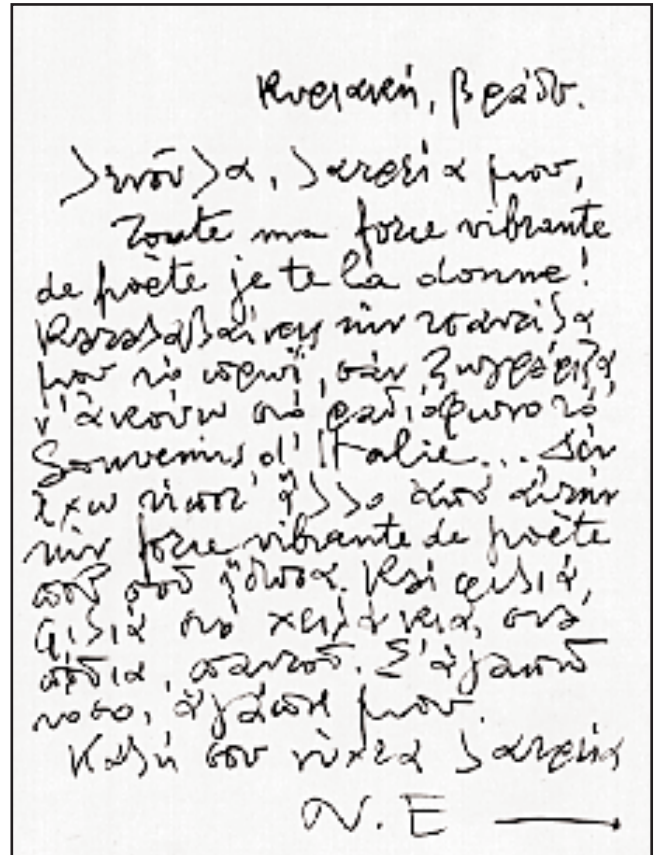 Κυριακή, βράδυ.
Λενούλα, λατρεία μου,
Toute ma force vibrante
de poète je te la donne!
Καταλαβαίνεις τὴν
μου τὸ πρωῒ, σὰν ζωγράφιζα
ν' ἀκούω στὸ ραδιόφωνο τὸ
Souvenirs d'Italie... Δὲν
ἔχω τίποτ' ἄλλο ἀπὸ αὐτὴν
τὴν force vibrante de poète
ποὺ σοῦ ἔδωσα. Καὶ φιλιά,
φιλιὰ στὰ χειλάκια, στὰ
πόδια, παντοῦ. Σ' ἀγαπῶ
τόσο, ἀγάπη μου.
Καλή σου νύχτα λατρεία
N. E